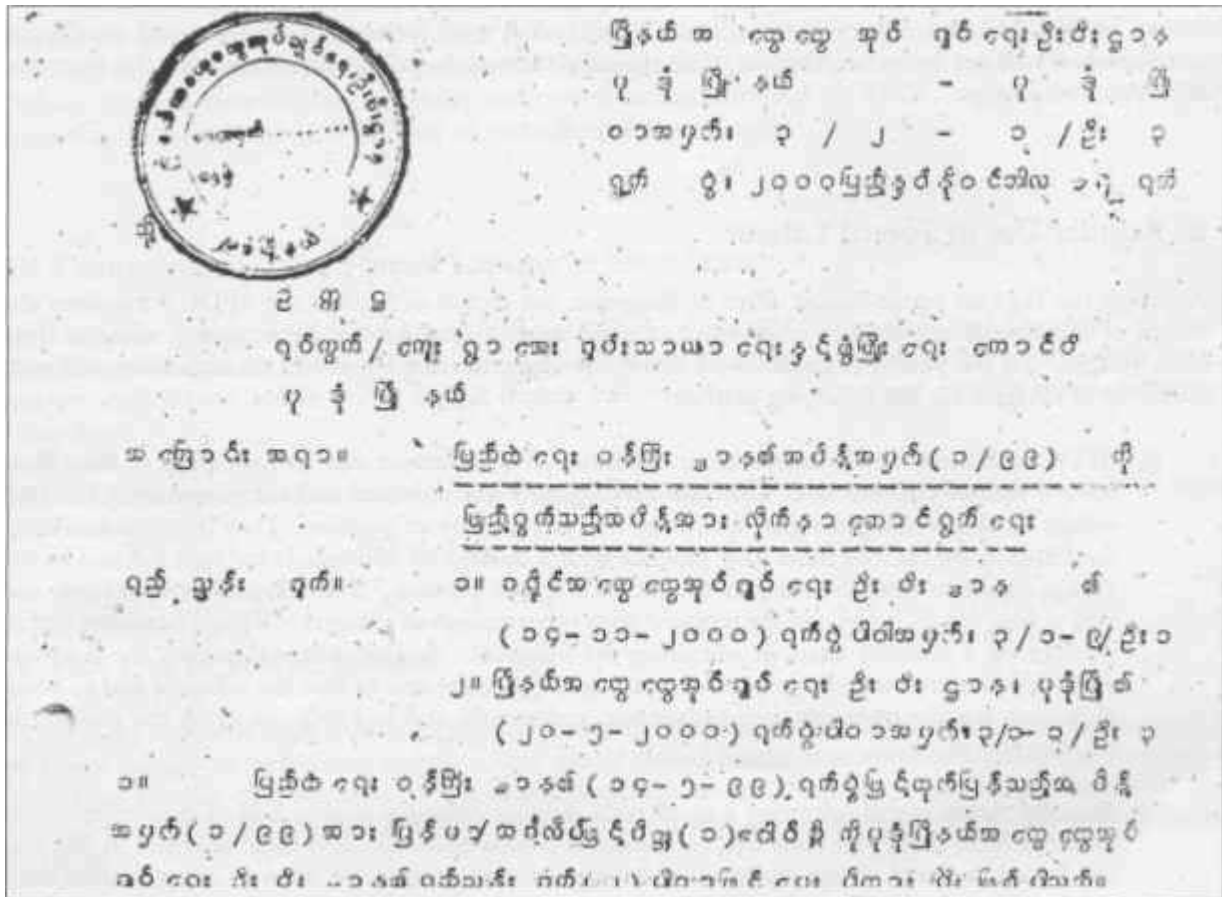 မြို့နယ်အထွေထွေအုပ်ချုပ်ရေးဦးစီးဌာန
မြို့နယ် -
စာအမှတ်၊ ၃ / ၂ - ၁ / ဦး ၃
ရက် စွဲ၊ ၂၀၀၀ပြည့်နှစ်နိုဝင်ဘာလ ရက်
ဥက္ကဋ္ဌ
ရပ်ကွက်/ကျေးရွာအေးချမ်းသာယာရေးနှင့်ဖွံ့ဖြိုးရေးကောင်စီ
မြို့နယ်
အကြောင်းအရာ။ ပြည်ထဲရေးဝန်ကြီးဌာန၏အမိန့်အမှတ်(၁/၉၉) ကို
ဖြည့်စွက်သည့်အမိန့်အား လိုက်နာဆောင်ရွက်ရေး
ရည်ညွှန်းချက်။ ၁။ ခရိုင်အထွေထွေအုပ်ချုပ်ရေးဦးစီးဌာန ၏
(၁၄-၁၁-၂၀၀၀) ရက်စွဲပါစာအမှတ်၊ ၃/၁-၉/ဦး၁
၂။ မြို့နယ်အထွေထွေအုပ်ချုပ်ရေးဦးစီးဌာန၊
(၂၀-၅-၂၀၀၀) ရက်စွဲပါစာအမှတ်၊ ၃/၁-၁/ဦး ၃
၁။ ပြည်ထဲရေးဝန်ကြီးဌာန၏(၁၄-၅-၉၉)ရက်စွဲဖြင့်ထုတ်ပြန်သည့်အမိန့်
အမှတ်(၁/၉၉)အား မြန်မာ/အင်္ဂလိပ်ဖြင့် (၁) ကို မြို့နယ်အထွေထွေအုပ်